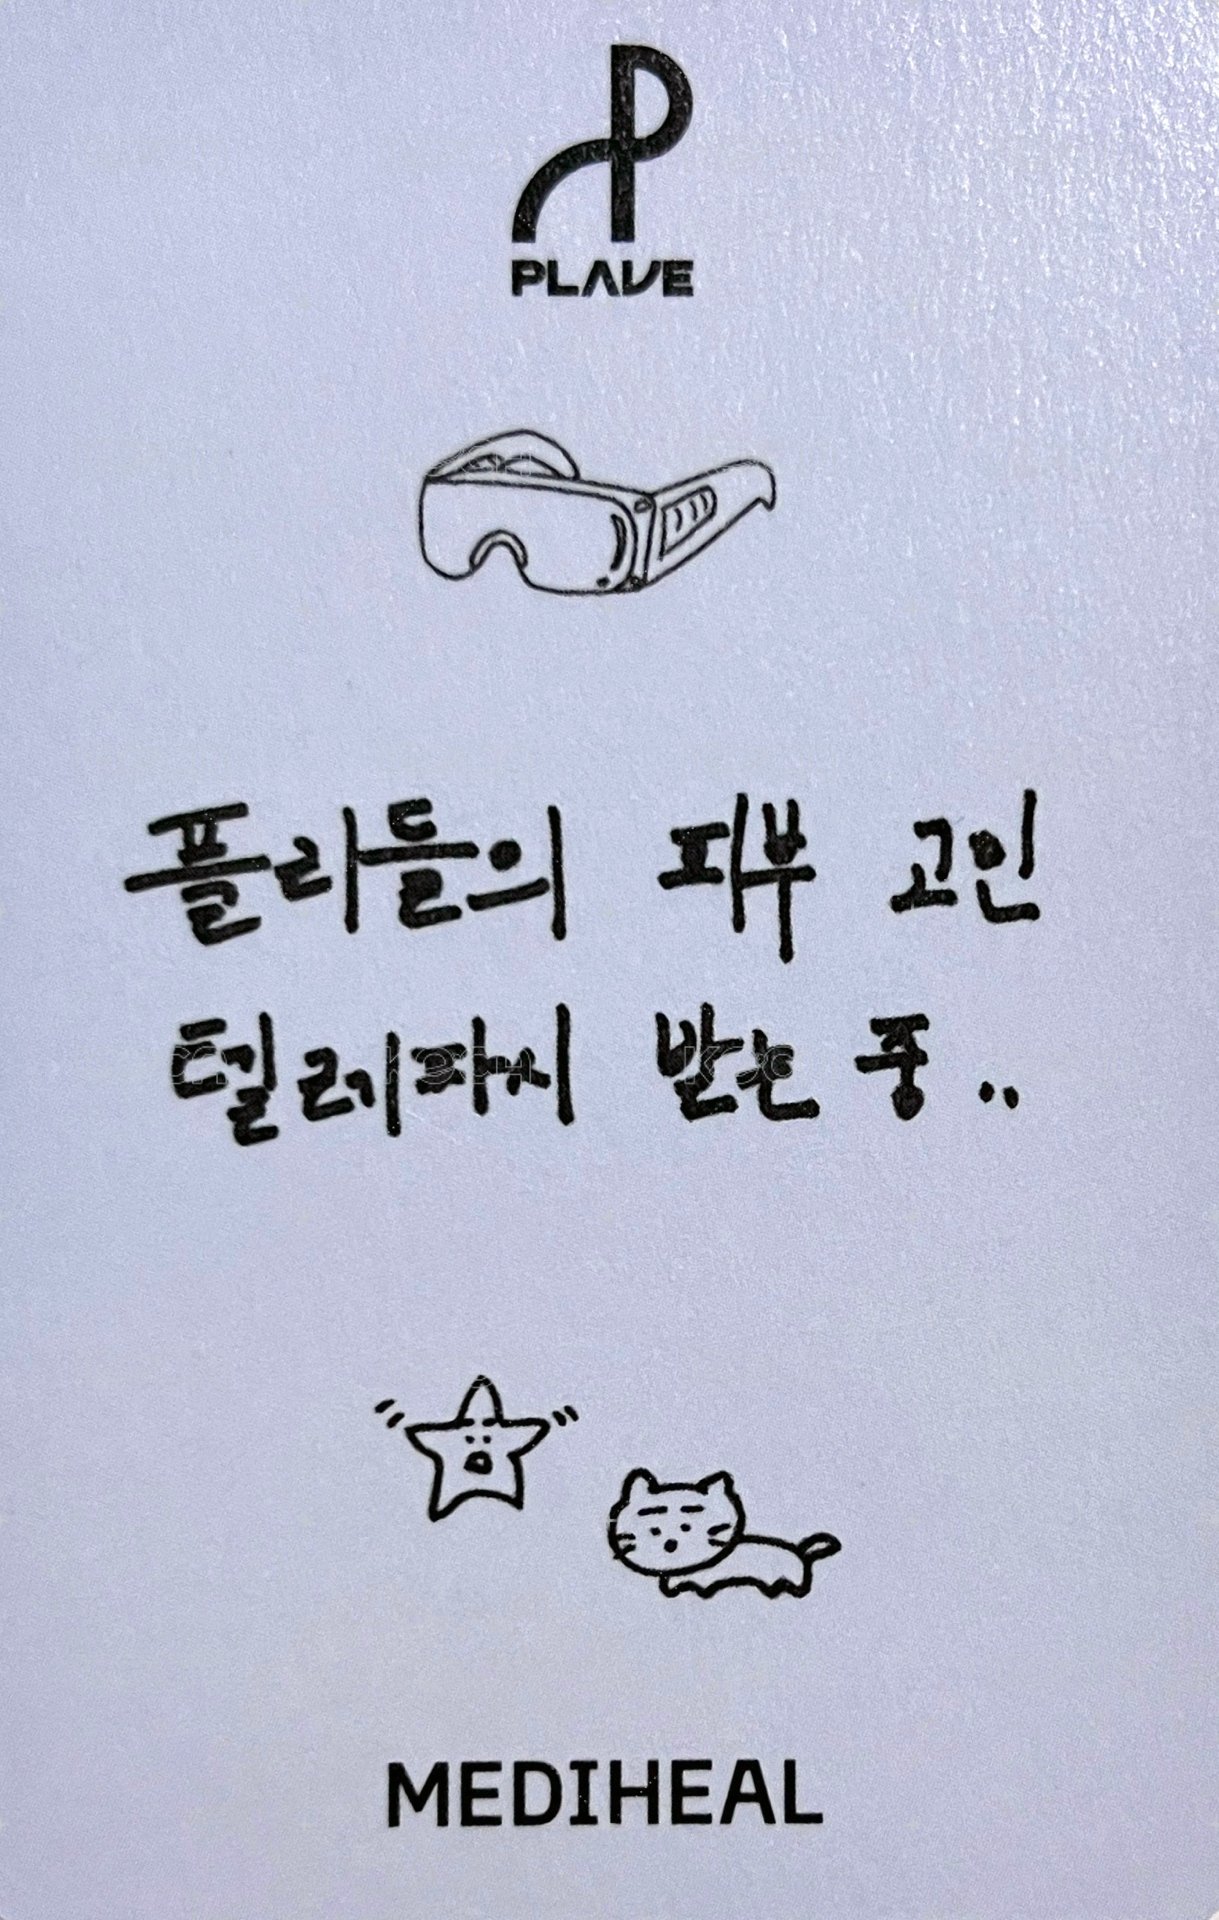 PLAVE
플리들의 피부 고민
텔레파시 받는 중..
MEDIHEAL